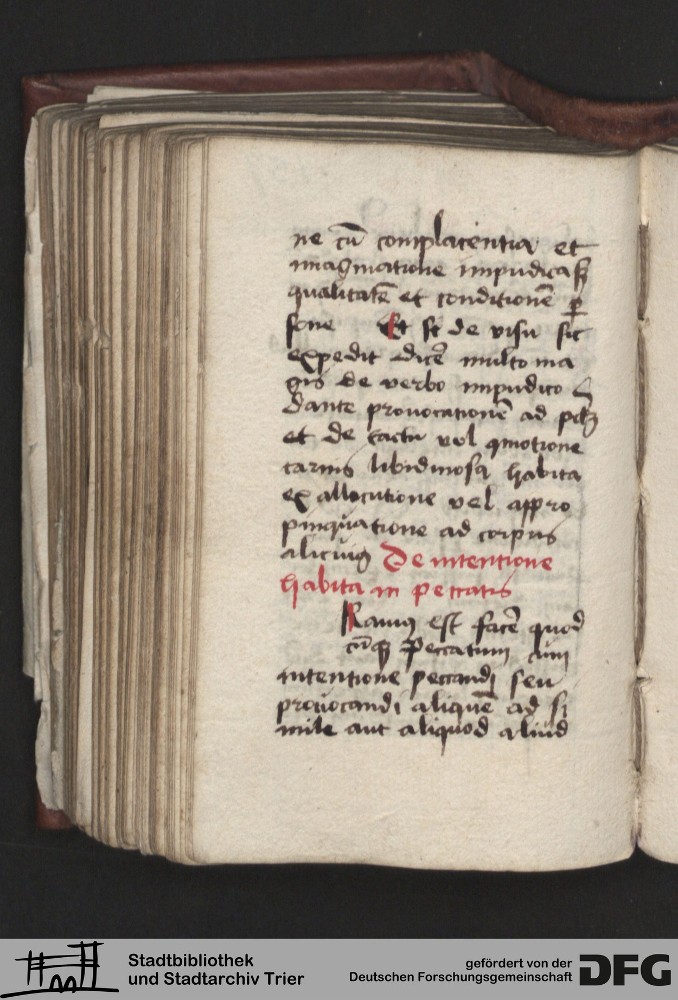 ne cū complacentia et
imaginatione impudica sz
qualitatē et conditionē per
sone Et si de visu sic
expedit dicē multo ma
gis de verbo impudico
dante prouocationē ad pctm
et de tactu vel qmotione
carnis libidinosa habita
ex allocutione vel appro
pinquatione ad corpus
alicuiꝯ De intentione
habita in peccatis
Rauiꝯ est facē quod
cūqꝫ peccatum cum
intentione peccandi seu
prouocandi aliquē ad si
mile aut aliquod aliud
Stadtbibliothek
und Stadtarchiv Trier
gefördert von der
Deutschen Forschungsgemeinschaft DFG